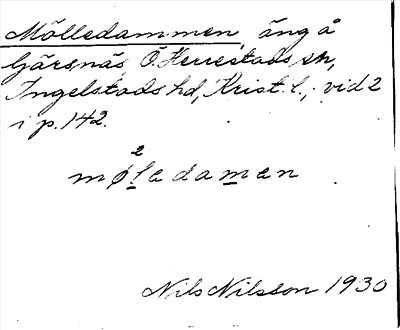 Mölledammen, äng å
Gärsnäs, Ö. Herrestads sn,
Ingelstads hd, Krist. l., vid 2
i p. 142.
2
møledamen
Nils Nilsson 1930